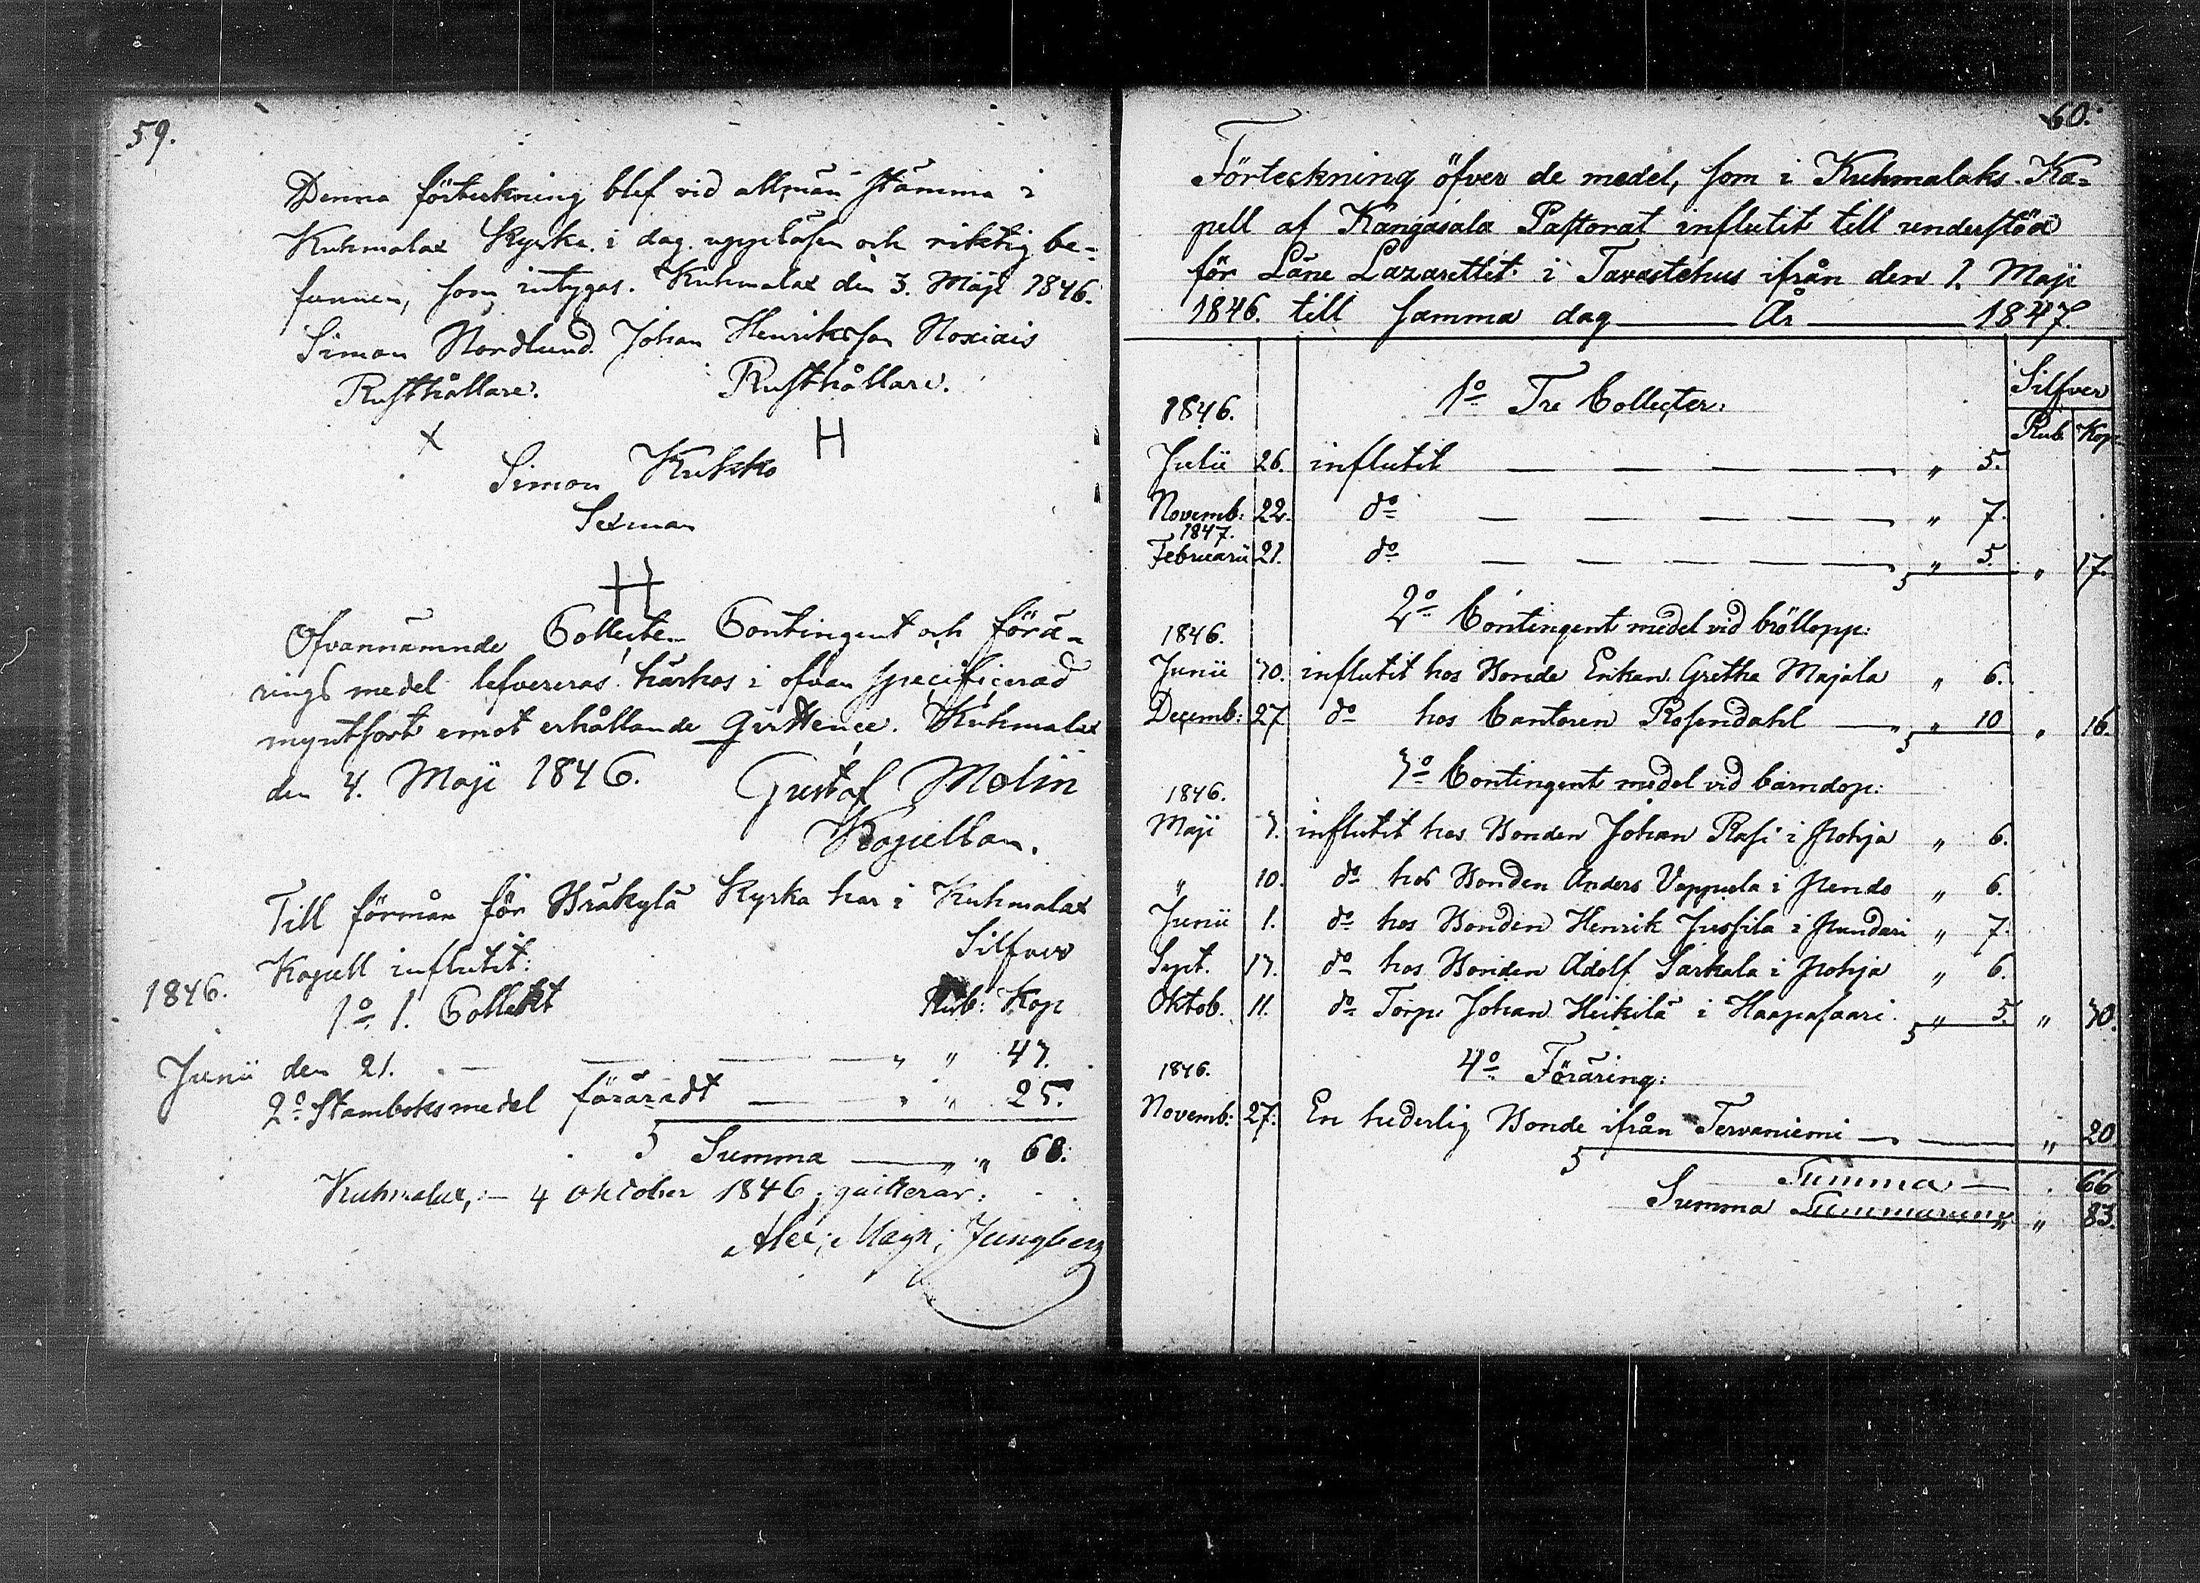 59.
Denna förteckning blef vid allmän stämma i
Kuhmalax Kyrka i dag uppläsen och riktig be-
funnen, som intygas. Kuhmalax den 3. Maji 1846.
Simon Nordlund Johan Henriksson Noxiais
Rusthållare. Rusthållare.
X H
Simon Kukko
Sexman
H
Ofvannämnde Collecte Contingent och förä-
rings medel lefvereras härhos i ofvan specificerad
myntsort emot erhållande Qvittence. Kuhmalax
den 4. Maji 1846. Gustaf Molin
Kapellan.
Till förmån för Bräkylä Kyrka har i Kuhmalax
Kapell influtit: Silfver
1846. 1º 1. Collekt Rub: Kop
Junii den 21. — — — — " " 43.
2º Stamboksmedel föräradt — — " " 25.
Summa — " " 68.
Kuhmalax, – 4 Oktober 1846, qvitterar:
Alex; Magn; Jungberg
60.
Förteckning öfver de medel, som i Kuhmalaks Ka=
pell af Kangasala Pastorat influtit till understöd
för Läne Lazarettet i Tavastehus ifrån den 1. Maji
1846. till samma dag — År — 1847.
Silfver
1846. 1º Tre Collecter: Rub. Kop.
Julii 26. influtit — — — — " 5.
Novemb: 22. dº — — — — " 7.
1847.
Februarii 21. dº — — — — " 5. " 17.
2º Contingent medel vid bröllopp:
1846.
Junii 30. influtit hos Bonde Enkan Gretha Majala " 6.
Decemb: 27 dº hos Cantoren Rosendahl — " 10 " 16.
3º Contingent medel vid barndop:
1846.
Maji 3. influtit hos Bonden Johan Rasi i Pohja " 6.
" 10. dº hos Bonden Anders Vappula i Pendo " 6.
Junii 1. dº hos Bonden Henrik Jussila i Pundari " 7.
Sept. 13. dº hos Bonden Adolf Sarkala i Pohja " 6.
Oktob. 11. dº Torp. Johan Heikilä i Haapasaari " 5. " 30.
1846. 4º Föräring:
Novemb: 27. En hederlig Bonde ifrån Tervaniemi — — " 20
Summa — . 66
Summa Summarum " " 83.